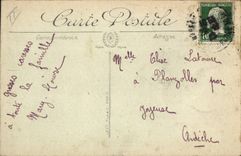 Carte Postale
Correspondance
Adresse
grosses caresses
à toute la famille
Mary Louise
Melle Elise Laboure
à Chazolles par
Joyeuse
Ardèche